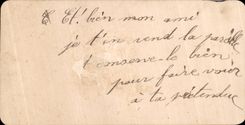 Et! bien mon ami
je t'en rend la pareille
conserve-le bien
pour faire voir
à ta prétendue